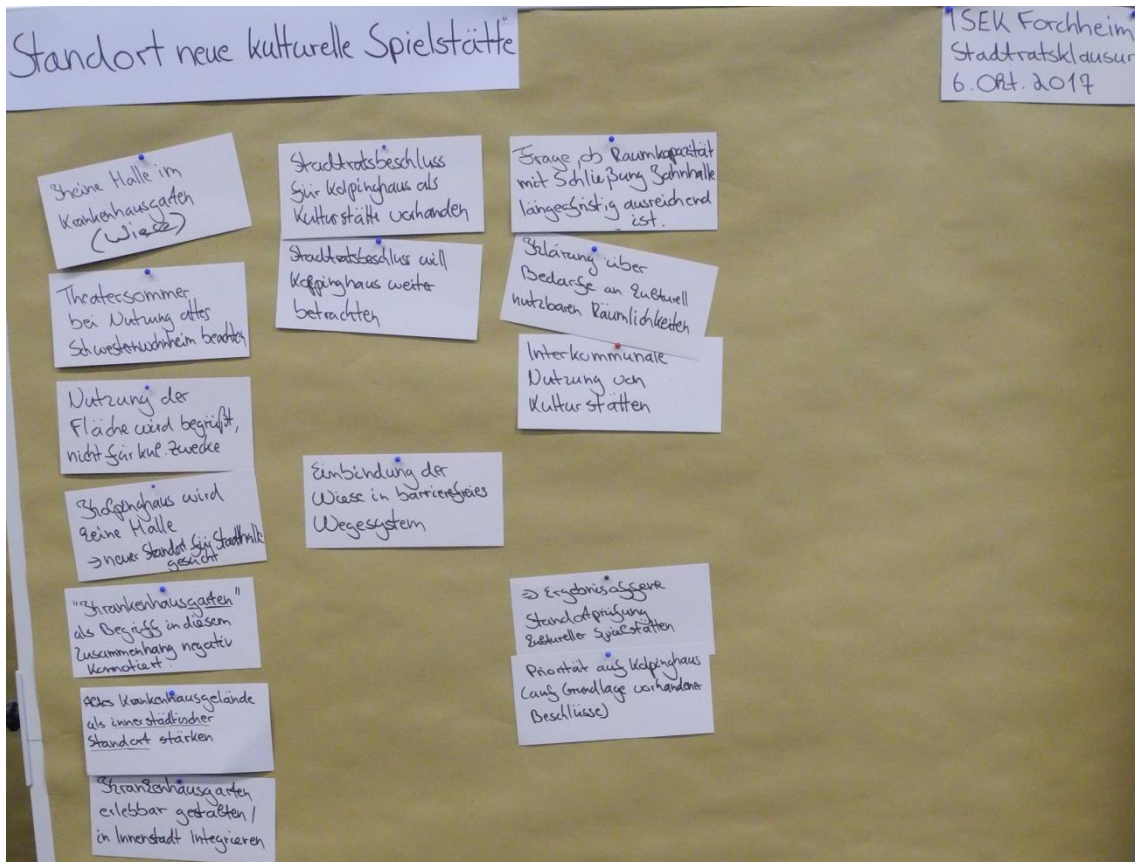 Standort neue kulturelle Spielstätte
ISEK Forchheim
Stadtratsklausur
6. Okt. 2017
Keine Halle im
Krankenhausgarten
(Wiese)
Theatersommer
bei Nutzung altes
Schwesternwohnheim beachten
Nutzung der
Fläche wird begrüßt,
nicht für kul. Zwecke
Kolpinghaus wird
keine Halle
→ neuer Standort für Stadthalle
gesucht
"Krankenhausgarten"
als Begriff in diesem
Zusammenhang negativ
konnotiert.
Altes Krankenhausgelände
als innerstädtischer
Standort stärken
Krankenhausgarten
erlebbar gestalten /
in Innenstadt Integrieren
Stadtratsbeschluss
für Kolpinghaus als
Kulturstätte vorhanden
Stadtratsbeschluss will
Kolpinghaus weiter
betrachten
Einbindung der
Wiese in barrierefreies
Wegesystem
Frage ob Raumkapazität
mit Schließung Jahnhalle
längerfristig ausreichend
ist.
Klärung über
Bedarfe an kulturell
nutzbaren Räumlichkeiten
Interkommunale
Nutzung von
Kulturstätten
→ Ergebnisoffene
Standortprüfung
kultureller Spielstätten
Priorität auf Kolpinghaus
(auf Grundlage vorhandener
Beschlüsse)